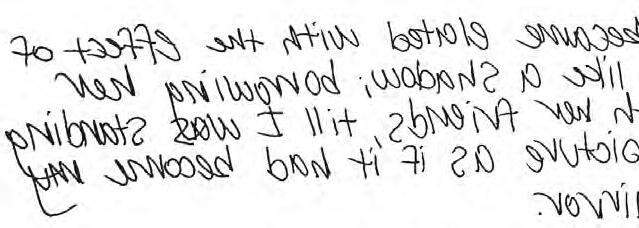 became elated with the effect of
like a shadow; borrowing her
h her friends, till I was standing
picture as if it had become my
mirror.